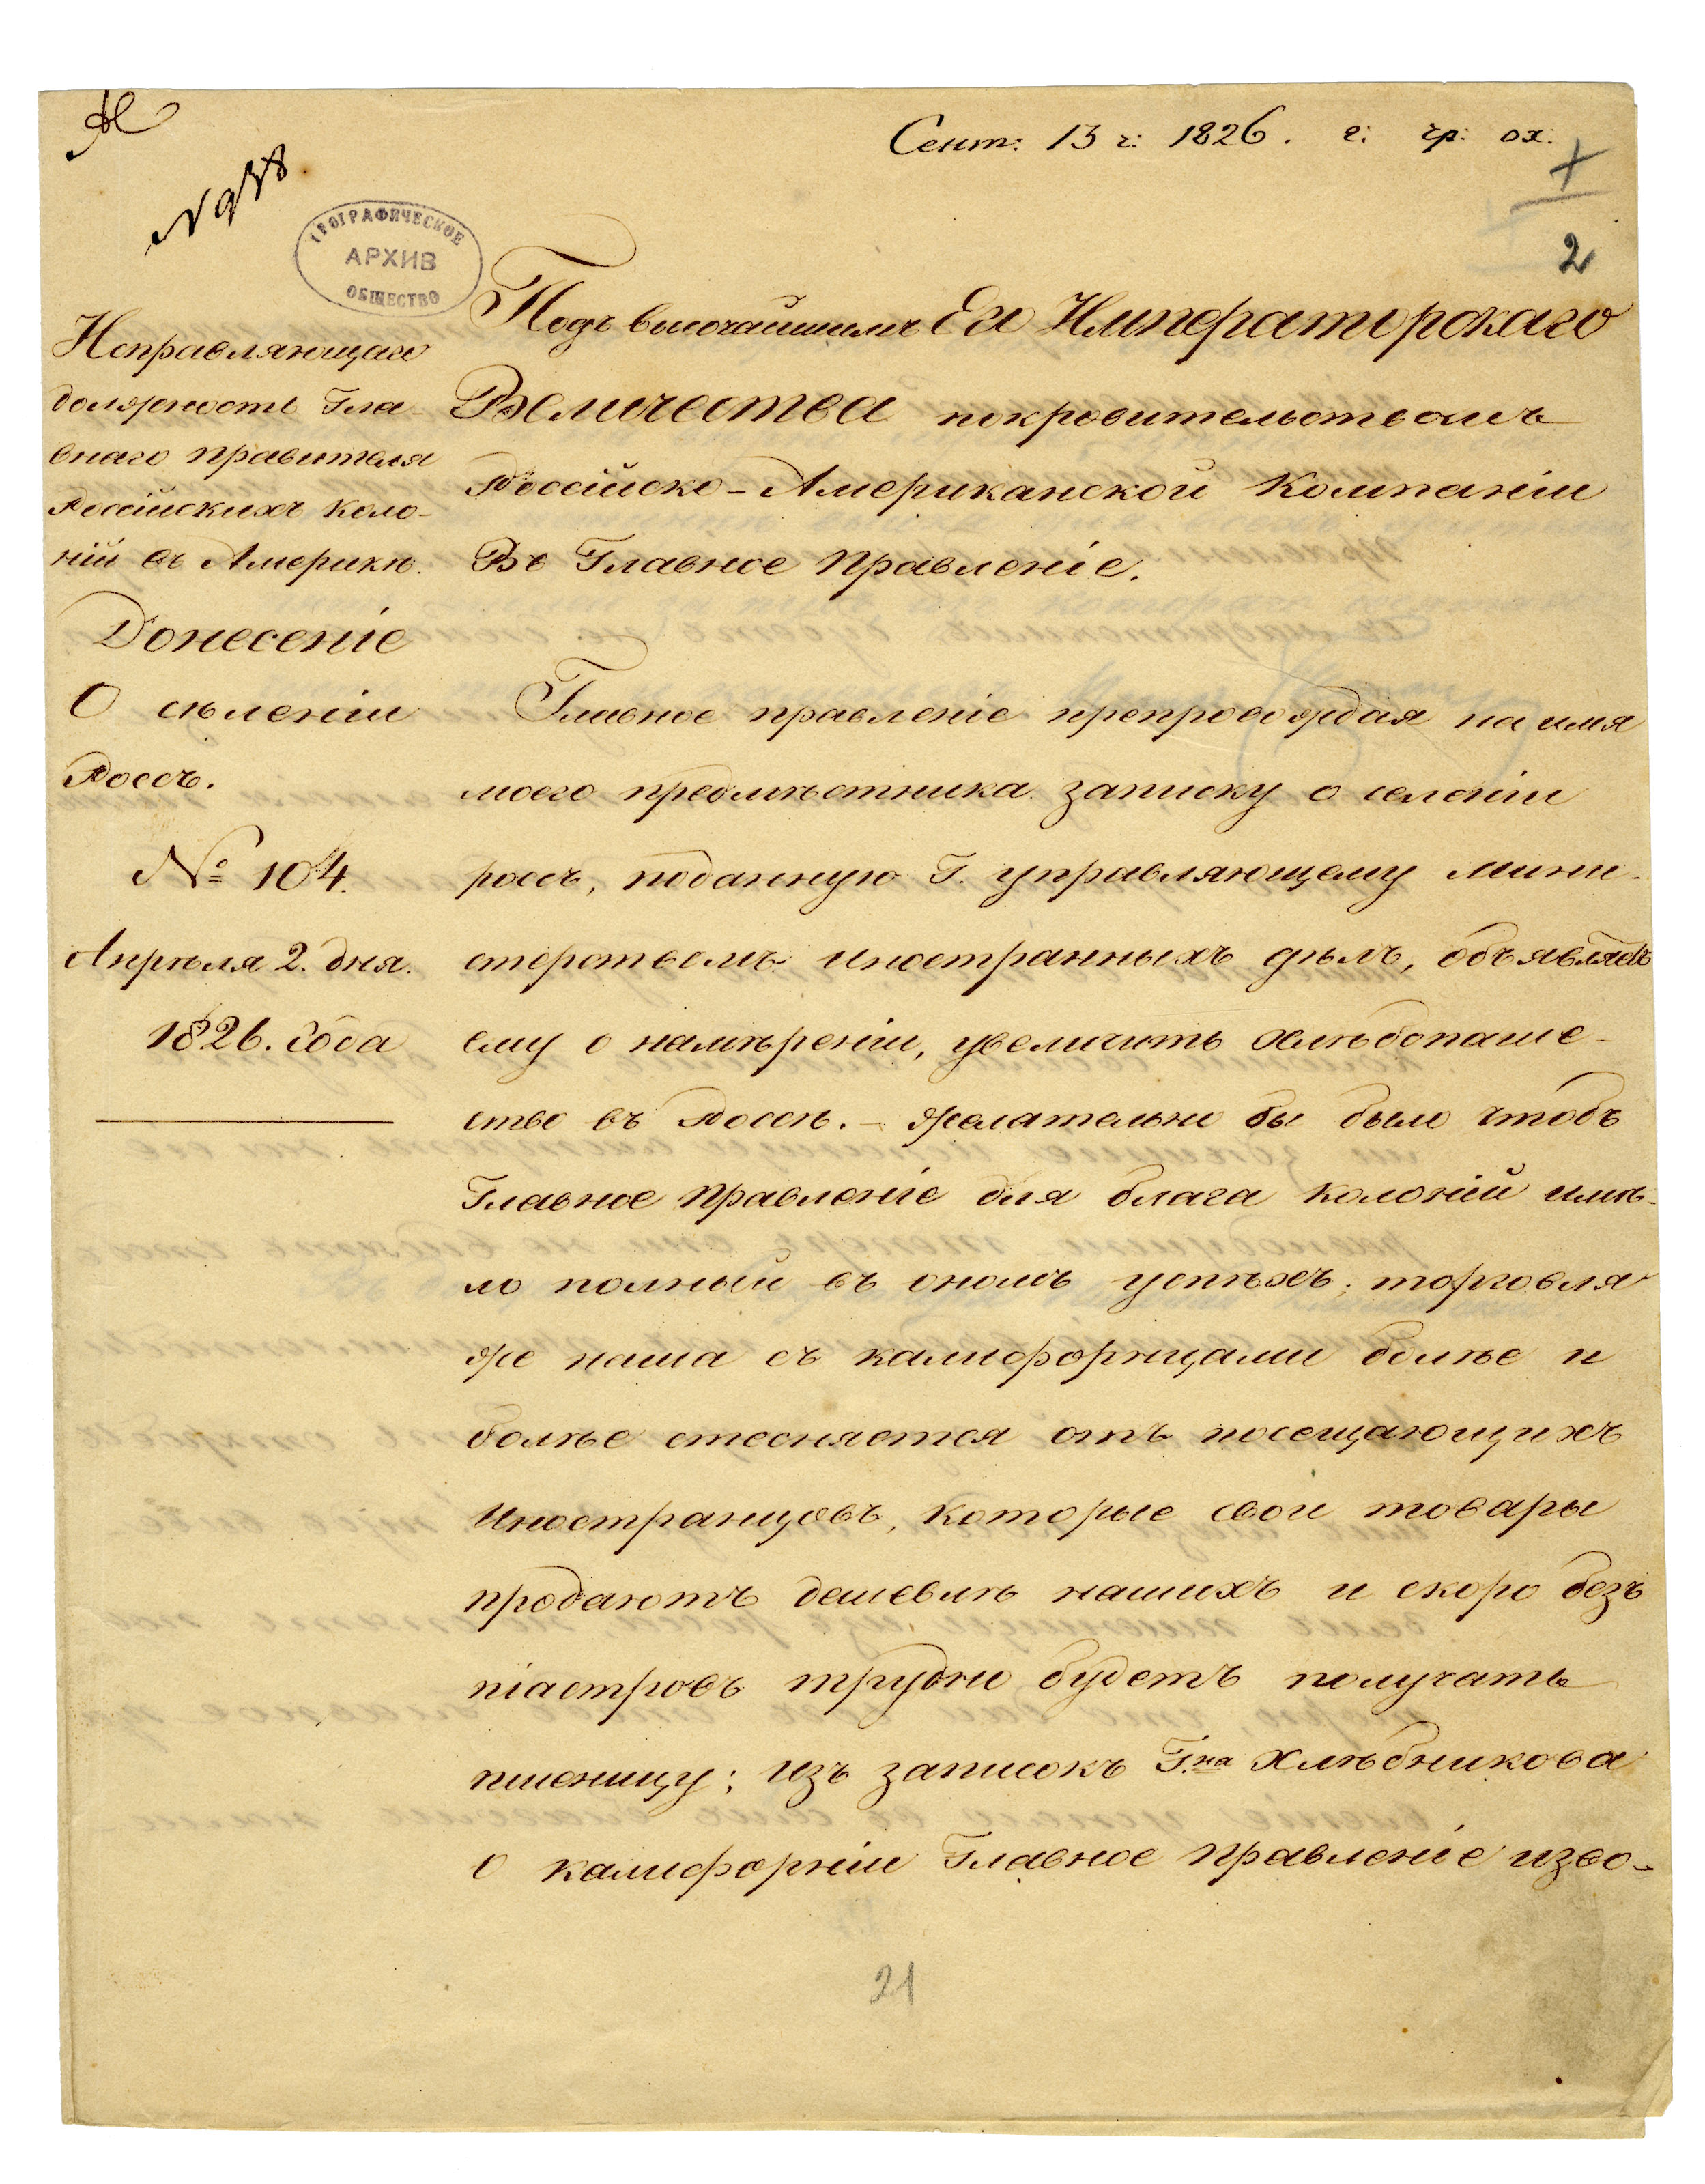 Сент: 13 ч: 1826. г: чр: ох:
N 938
ГЕОГРАФИЧЕСКОЕ
АРХИВ
ОБЩЕСТВО
2
Исправляющаго
должность Гла-
внаго Правителя
Россійскихъ Коло-
ній въ Америкѣ.
Донесеніе
О сѣленіи
Россъ.
№ 104.
Апрѣля 2. дня.
1826. Года
Подъ высочайшимъ Его Императорскаго
Величества покровительствомъ
Россійско-Американской Компаніи
Въ Главное Правленіе.
Главное правленіе препровождая на имя
моего предмѣстника записку о селеніи
россъ, поданную Г. управляющему мини-
стерствомъ иностранныхъ дѣлъ, объявляетъ
ему о намѣреніи, увеличить хлѣбопаше-
ство въ Россѣ. - желательно бы было чтобъ
Главное Правленіе для блага колоній имѣ-
ло полный въ ономъ успѣхъ; торговля
же наша съ калифорнцами болѣе и
болѣе стесняется отъ посещающихъ
Иностранцовъ, которые свои товары
продаютъ дешевлѣ нашихъ и скоро безъ
піастровъ трудно будетъ получать
пшеницу; изъ записокъ Г.на Хлѣбникова
о калифорніи Главное Правленіе изво-
21